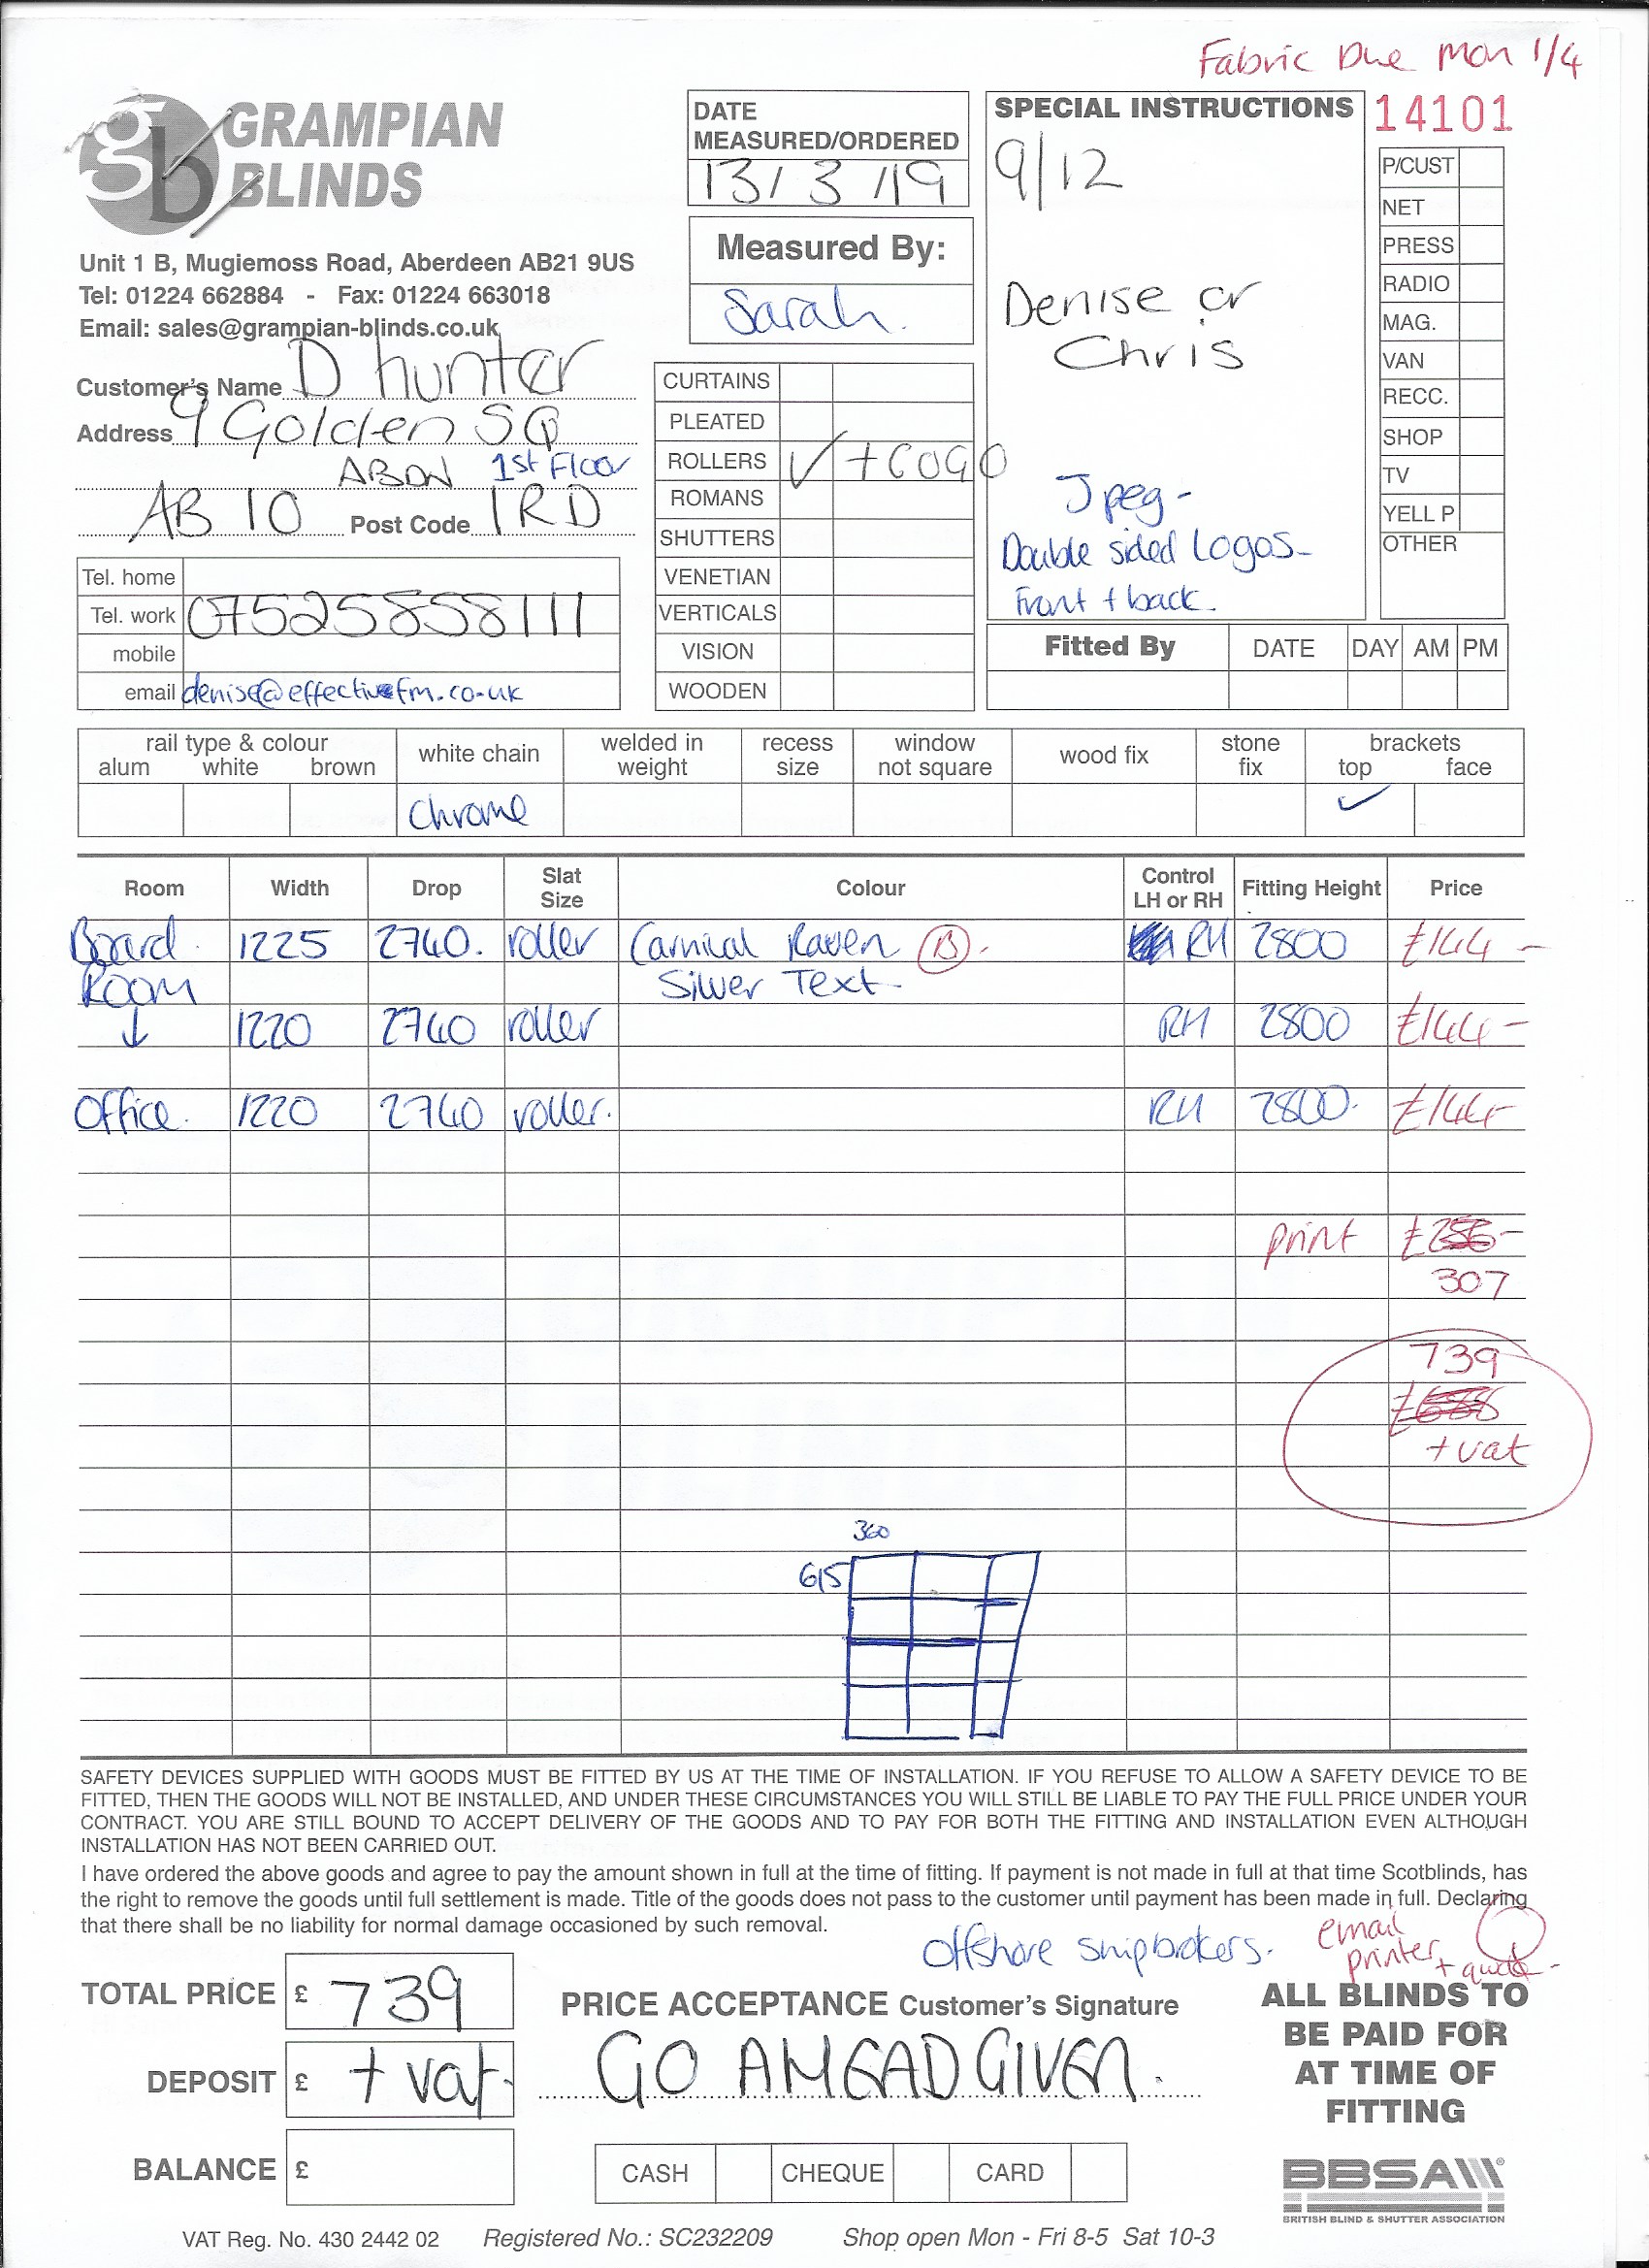 Fabric Due Mon 1/4
GRAMPIAN
BLINDS
Unit 1 B, Mugiemoss Road, Aberdeen AB21 9US
Tel: 01224 662884 - Fax: 01224 663018
Email: sales@grampian-blinds.co.uk
Customer's Name D hunter
Address 9 Golden SQ
ABDN 1st Floor
AB 10 Post Code 1RD
Tel. home
Tel. work 07525858111
mobile
email denise@effectivefm.co.uk
DATE
MEASURED/ORDERED
13/3/19
Measured By:
Sarah.
CURTAINS
PLEATED
ROLLERS ✓ + LOGO
ROMANS
SHUTTERS
VENETIAN
VERTICALS
VISION
WOODEN
SPECIAL INSTRUCTIONS
9/12
Denise or
Chris
Jpeg -
Double sided Logos -
Front + back.
14101
P/CUST
NET
PRESS
RADIO
MAG.
VAN
RECC.
SHOP
TV
YELL P
OTHER
Fitted By DATE DAY AM PM
rail type & colour white chain welded in recess window wood fix stone brackets
alum white brown weight size not square fix top face
Chrome ✓
Room Width Drop Slat Size Colour Control LH or RH Fitting Height Price
Board 1225 2740. roller Carnival Raven (B). RH 2800 £144 -
Room Silver Text
↓ 1220 2740 roller RH 2800 £144 -
Office. 1220 2740 roller. RH 2800. £144 -
print
307
739
+ vat
360
615
SAFETY DEVICES SUPPLIED WITH GOODS MUST BE FITTED BY US AT THE TIME OF INSTALLATION. IF YOU REFUSE TO ALLOW A SAFETY DEVICE TO BE
FITTED, THEN THE GOODS WILL NOT BE INSTALLED, AND UNDER THESE CIRCUMSTANCES YOU WILL STILL BE LIABLE TO PAY THE FULL PRICE UNDER YOUR
CONTRACT. YOU ARE STILL BOUND TO ACCEPT DELIVERY OF THE GOODS AND TO PAY FOR BOTH THE FITTING AND INSTALLATION EVEN ALTHOUGH
INSTALLATION HAS NOT BEEN CARRIED OUT.
I have ordered the above goods and agree to pay the amount shown in full at the time of fitting. If payment is not made in full at that time Scotblinds, has
the right to remove the goods until full settlement is made. Title of the goods does not pass to the customer until payment has been made in full. Declaring
that there shall be no liability for normal damage occasioned by such removal.
Offshore shipbrokers.
email
printer + quote -
TOTAL PRICE £ 739
DEPOSIT £ + vat.
BALANCE £
PRICE ACCEPTANCE Customer's Signature
GO AHEAD GIVEN.
CASH CHEQUE CARD
ALL BLINDS TO
BE PAID FOR
AT TIME OF
FITTING
BBSA
BRITISH BLIND & SHUTTER ASSOCIATION
VAT Reg. No. 430 2442 02 Registered No.: SC232209 Shop open Mon - Fri 8-5 Sat 10-3